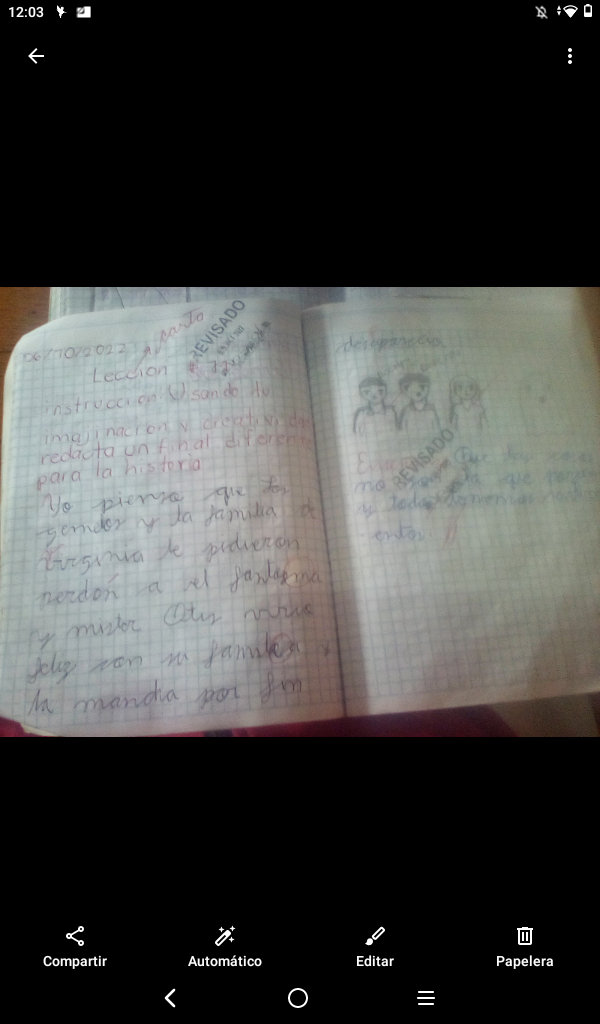 12:03
06/10/2022 1 punto
REVISADO
Lección # 12
instrucción Usando tu
imajinacion y creativida
redacta un final diferente
para la historia
Yo pienso que los
gemelos y la familia de
Virginia le pidieron
perdon a el fantasma
y mister Otis vivio
feliz con su familia y
la mancha por fin
desaparecio
REVISADO
Que hay
no que
y todos
entos
Compartir
Automático
Editar
Papelera